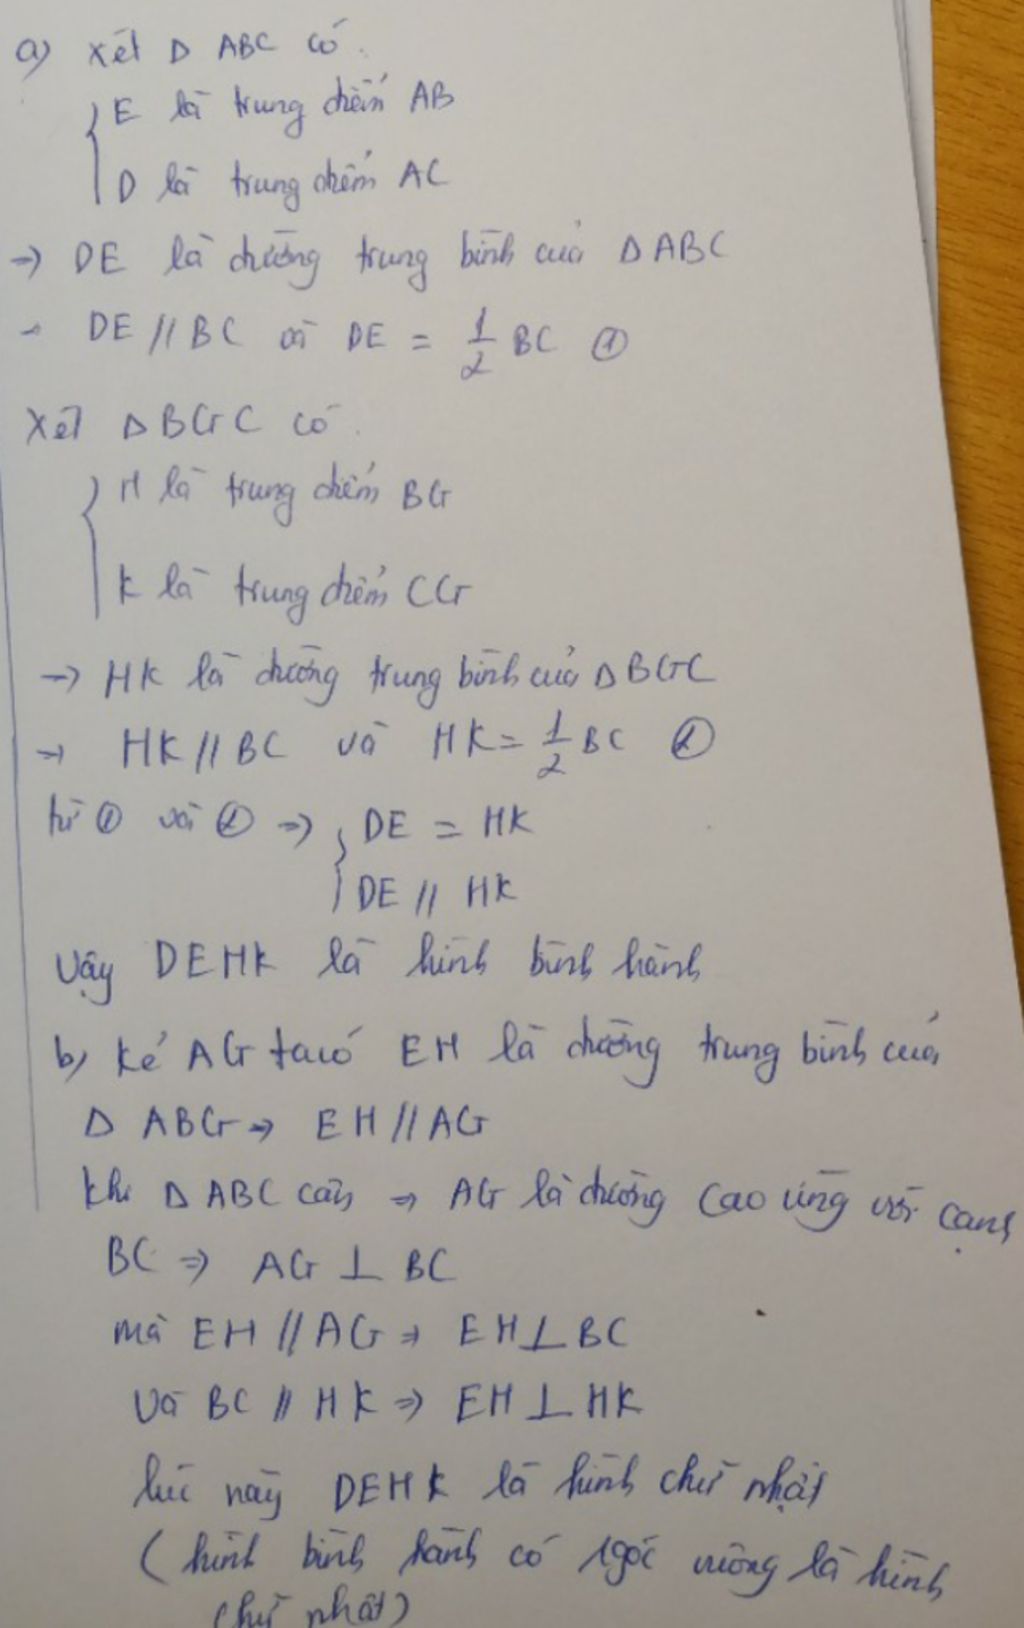 a) Xét Δ ABC có
E là trung điểm AB
D là trung điểm AC
→ DE là đường trung bình của Δ ABC
→ DE // BC và DE = 1/2 BC ①
Xét Δ BGC có
H là trung điểm BG
K là trung điểm CG
→ HK là đường trung bình của Δ BGC
→ HK // BC và HK = 1/2 BC ②
từ ① và ② → { DE = HK
DE // HK
Vậy DEHK là hình bình hành
b) Kẻ AG ta có EH là đường trung bình của
Δ ABG → EH // AG
Khi Δ ABC cân → AG là đường cao ứng với cạnh
BC → AG ⊥ BC
mà EH // AG → EH ⊥ BC
và BC // HK → EH ⊥ HK
lúc này DEHK là hình chữ nhật
( hình bình hành có 1 góc vuông là hình
chữ nhật)